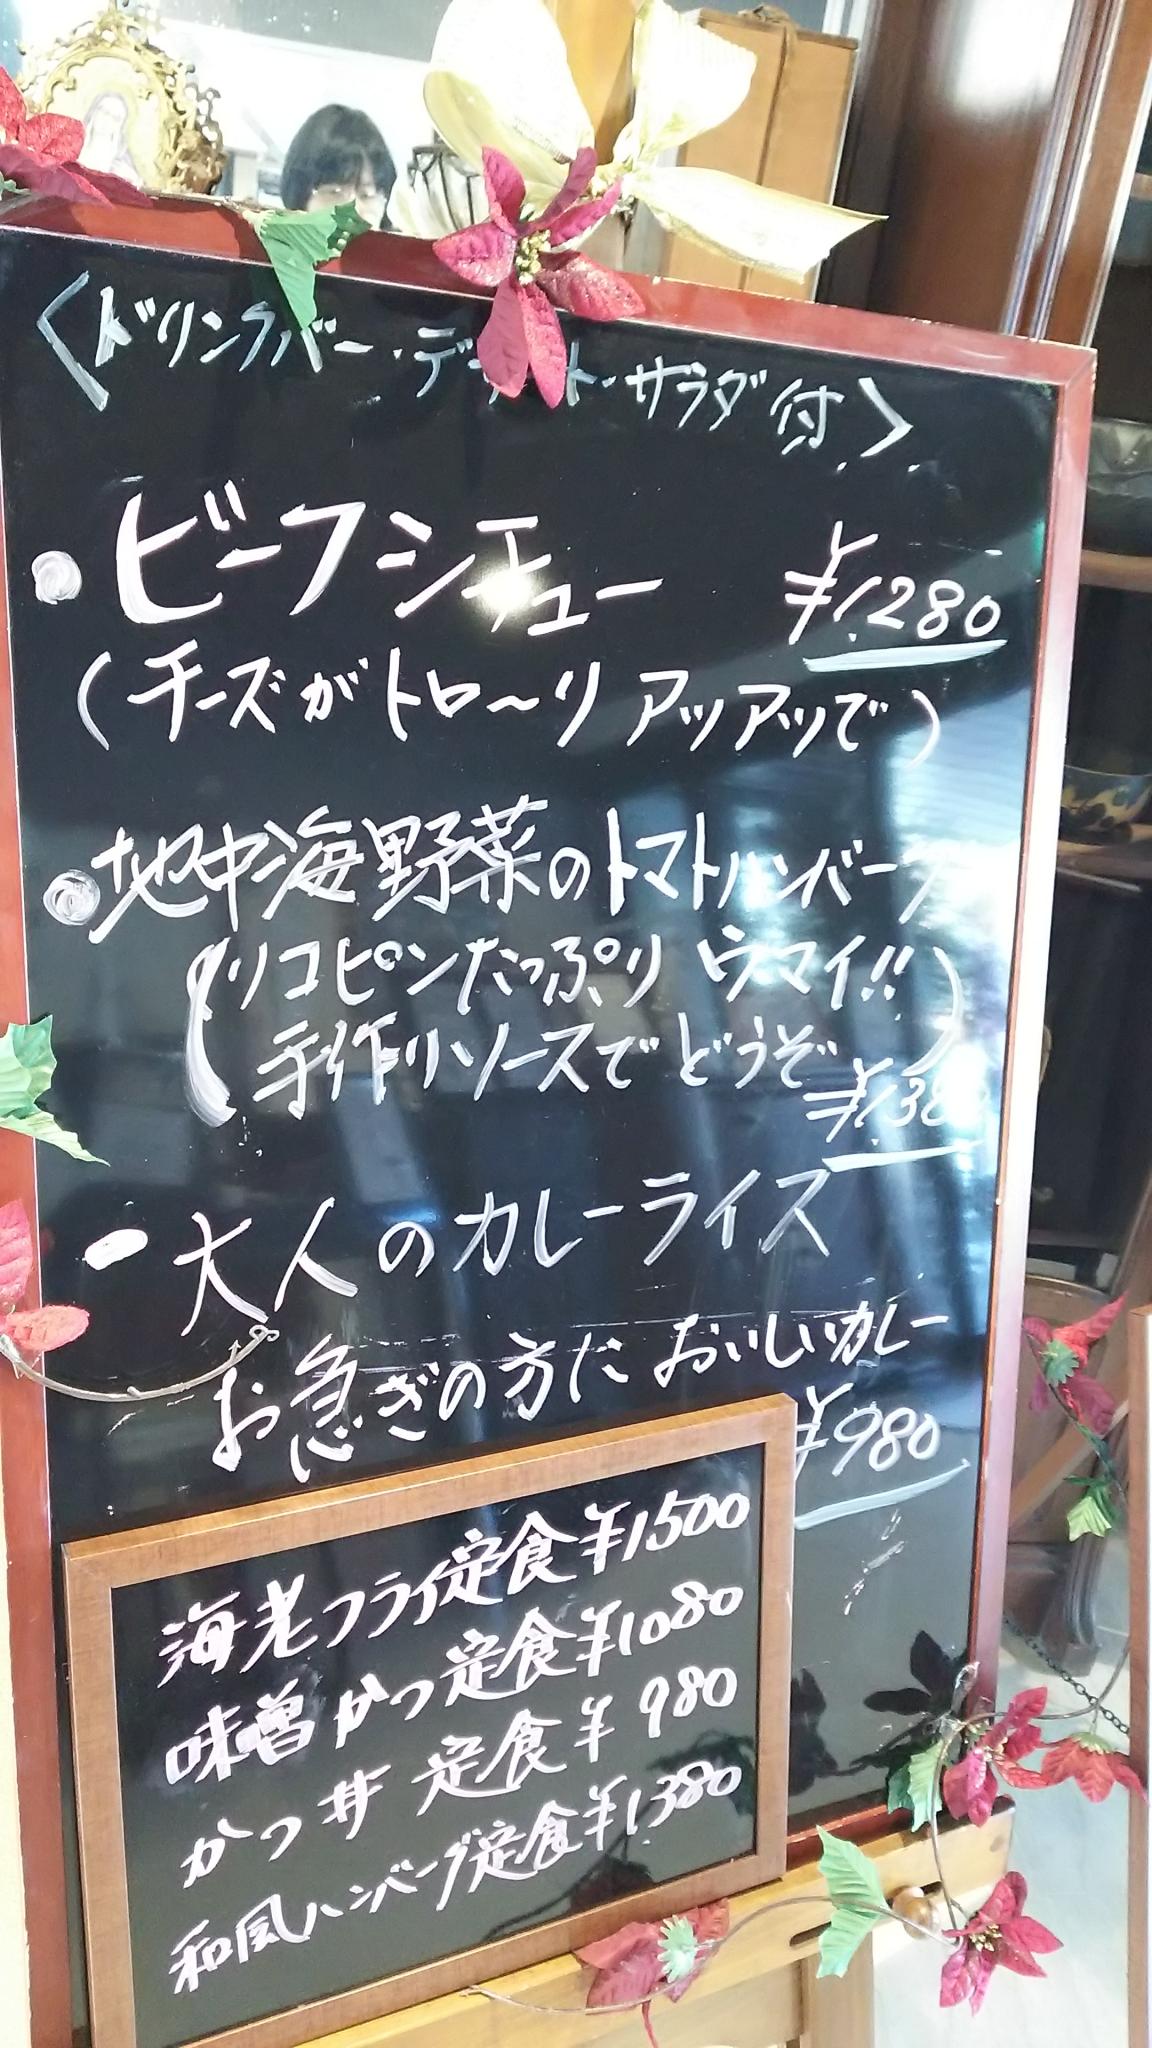 〈ドリンクバー・デ ト・サラダ付〉
・ビーフシチュー ¥1280
(チーズがトロ〜リ アツアツで)
・地中海野菜のトマトハンバーグ
(リコピンたっぷり ウマイ!!
手作りソースでどうぞ)
¥138
・大人のカレーライス
お急ぎの方に おいしいカレー
¥980
海老フライ定食¥1500
味噌かつ定食¥1080
かつ丼 定食¥980
和風ハンバーグ定食¥1380